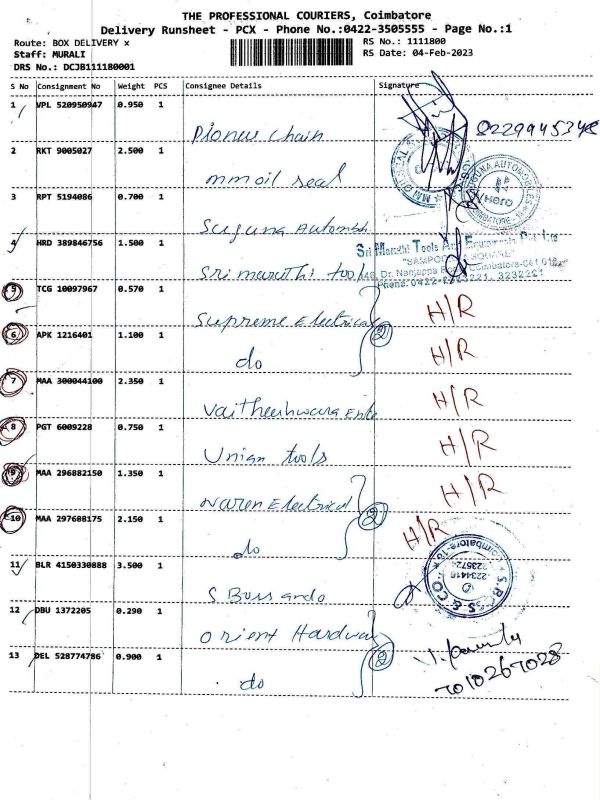 THE PROFESSIONAL COURIERS, Coimbatore
Delivery Runsheet - PCX - Phone No.:0422-3505555 - Page No.:1
Route: BOX DELIVERY x
RS No.: 1111800
Staff: MURALI
RS Date: 04-Feb-2023
DRS No.: DCJB111180001
S No Consignment No Weight PCS Consignee Details Signature
1 VPL 520950947 0.950 1
Pioneer Chain
2 RKT 9005027 2.500 1
mm oil seal
3 RPT 5194086 0.700 1
Suguna Automob
4 HRD 389846756 1.500 1
Sri maruthi tools
Sri Maruthi Tools And Equipments Pvt Ltd
5 TCG 10097967 0.570 1
Supreme Electrical H/R
6 APK 1216401 1.100 1
do 2 H/R
7 MAA 300044100 2.350 1
Vaitheeshwara Ente H/R
8 PGT 6009228 0.750 1
Union tools H/R
9 MAA 296882150 1.350 1
Naren Electrical H/R
10 MAA 297688175 2.150 1
do 2 H/R
11 BLR 4150330888 3.500 1
12 DBU 1372205 0.290 1
Orient Hardwar
13 DEL 528774786 0.900 1
do 2
7010267028